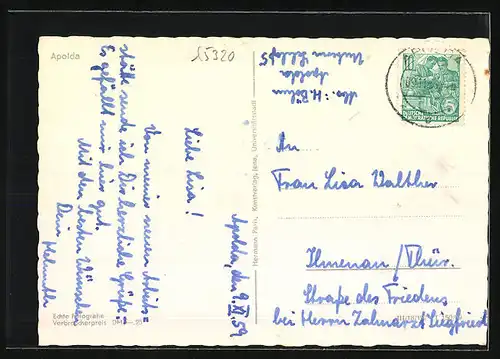 Apolda
15320
Abs.: H. Böhm
Apolda
Unterm Schloß
Apolda, den 9. XI. 59
Liebe Lisa!
Von meiner neuen Arbeits=
stätte sende ich Dir herzliche Grüße!
Es gefällt mir hier gut.
Mit den besten Wünschen
Dein
Helmuth
Hermann Paris, Kunstverlag, Jena, Universitätsstadt
DEUTSCHE
DEMOKRATISCHE REPUBLIK
An
Frau Lisa Walther
Ilmenau / Thür.
Straße des Friedens
bei Herrn Zahnarzt Siegfried
Echte Fotografie
Verbraucherpreis